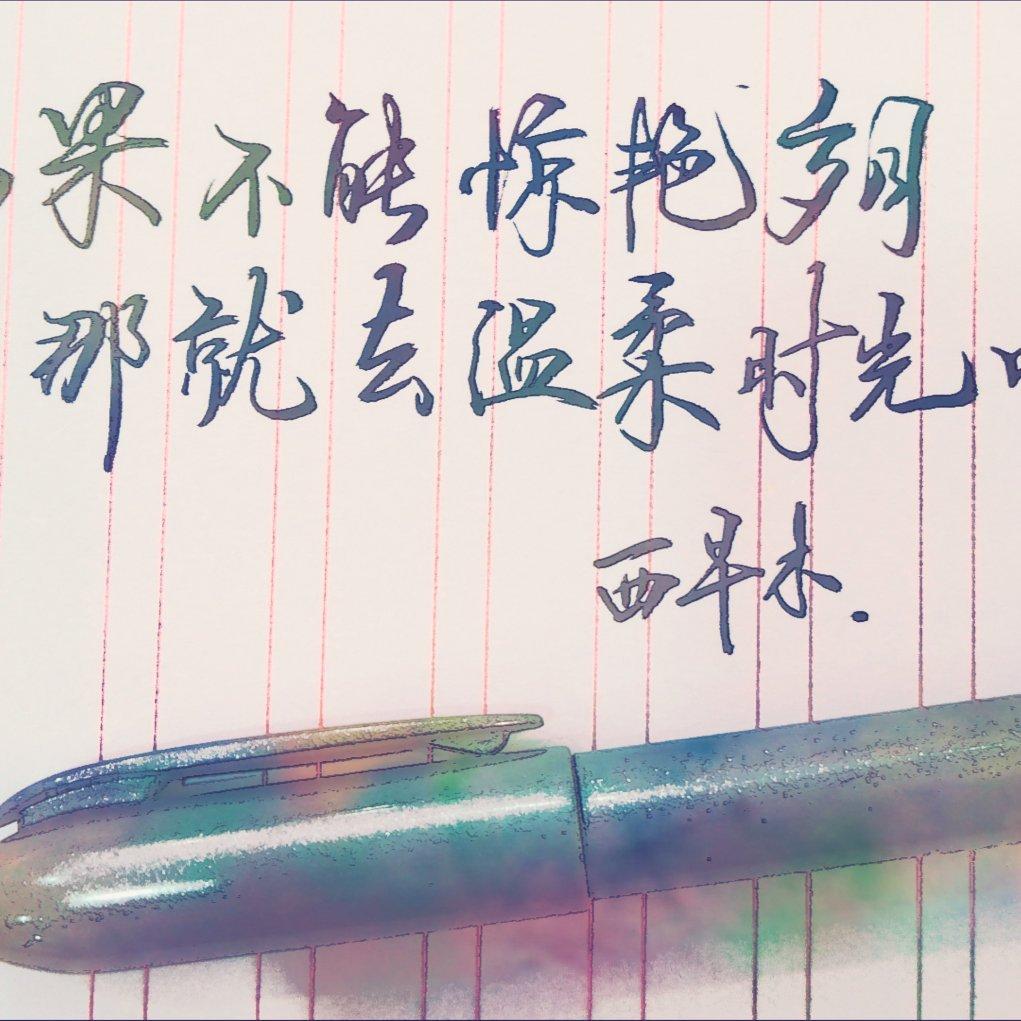 果不能惊艳岁月
那就去温柔时光
西早木.